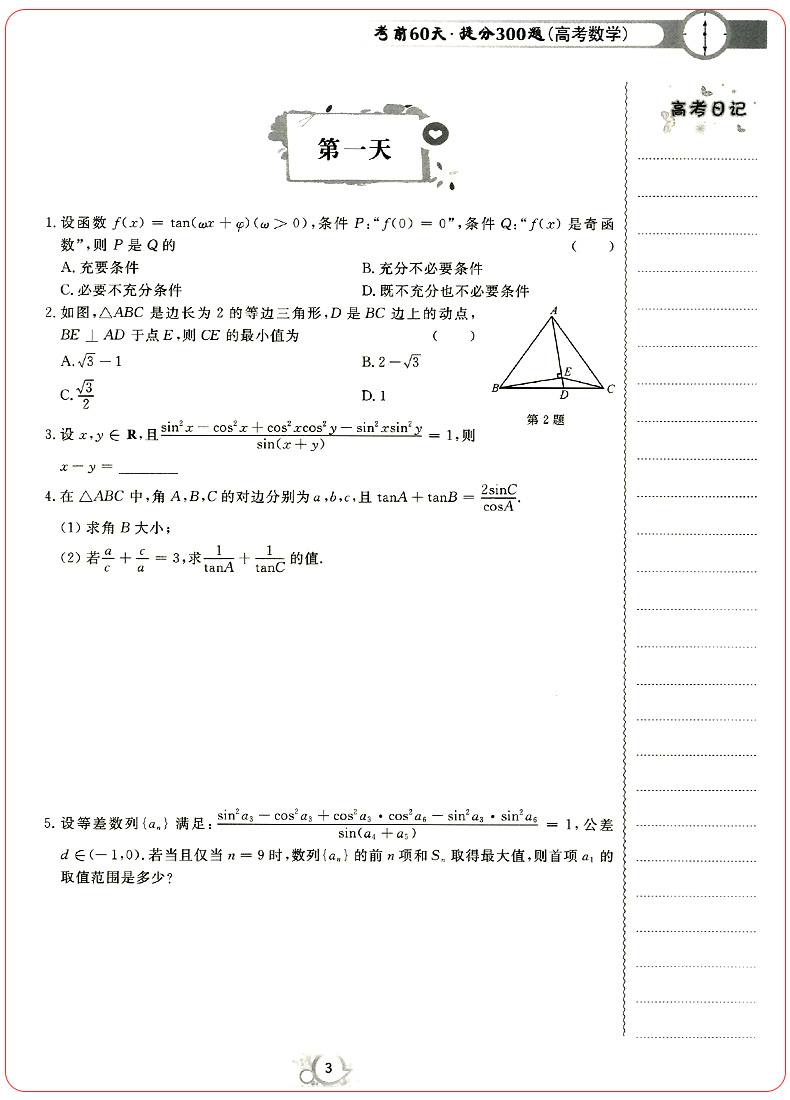 考前60天·提分300题(高考数学)
高考日记
第一天
1. 设函数 f(x) = tan(ωx + φ)(ω > 0),条件 P:“f(0) = 0”,条件 Q:“f(x) 是奇函
数”,则 P 是 Q 的 (  )
A. 充要条件 B. 充分不必要条件
C. 必要不充分条件 D. 既不充分也不必要条件
2. 如图,△ABC 是边长为 2 的等边三角形,D 是 BC 边上的动点,
BE ⊥ AD 于点 E,则 CE 的最小值为 (  )
A. √3 − 1 B. 2 − √3
C. √3/2 D. 1
A
E
B D C
第 2 题
3. 设 x,y ∈ R,且 (sin²x − cos²x + cos²xcos²y − sin²xsin²y)/sin(x + y) = 1,则
x − y = ________
4. 在 △ABC 中,角 A,B,C 的对边分别为 a,b,c,且 tanA + tanB = 2sinC/cosA.
(1) 求角 B 大小;
(2) 若 a/c + c/a = 3,求 1/tanA + 1/tanC 的值.
5. 设等差数列{aₙ} 满足: (sin²a₃ − cos²a₃ + cos²a₃ · cos²a₆ − sin²a₃ · sin²a₆)/sin(a₄ + a₅) = 1,公差
d ∈ (−1,0). 若当且仅当 n = 9 时,数列{aₙ} 的前 n 项和 Sₙ 取得最大值,则首项 a₁ 的
取值范围是多少?
3